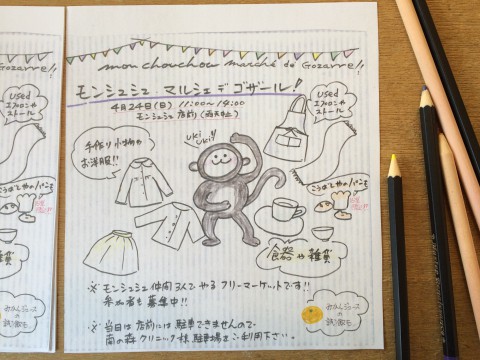 mon chouchou marché de Gozarre!!
モンシュシュ マルシェ デ ゴザール!
4月24日(日) 11:00~14:00
モンシュシュ 店前(雨天中止)
Used
エプロンや
ストール
uki
uki!
手作り小物や
お洋服!!
食器や雑貨
※ モンシュシュ仲間3人でやる フリーマーケットです!!
参加者も募集中!!
みかんジュース
の
試飲も
※ 当日は店前には駐車できませんので
南の森クリニック様 駐車場をご利用下さい。
Gozarre!!
Used
エプロンや
ストール
雑貨
みかんジュース
の
試飲も